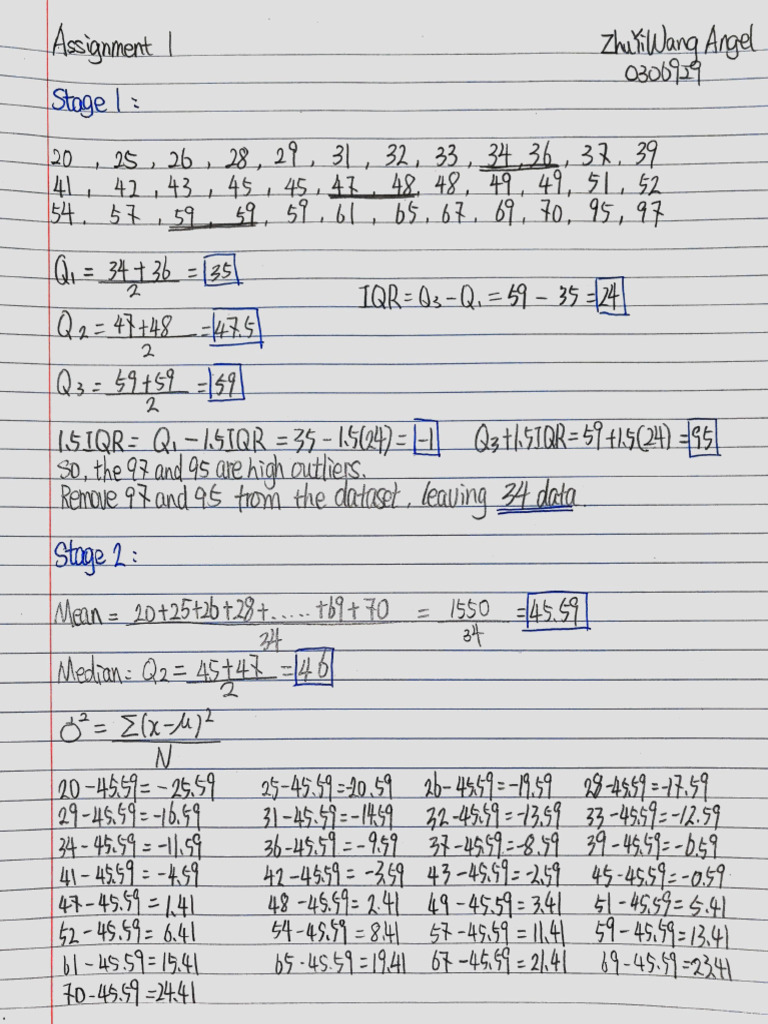 Assignment 1
ZhuYiWang Angel
0306929
Stage 1:
20, 25, 26, 28, 29, 31, 32, 33, 34, 36, 37, 39
41, 42, 43, 45, 45, 47, 48, 48, 49, 49, 51, 52
54, 57, 59, 59, 59, 61, 65, 67, 69, 70, 95, 97
Q₁ = (34+36)/2 = 35
IQR = Q₃ - Q₁ = 59 - 35 = 24
Q₂ = (47+48)/2 = 47.5
Q₃ = (59+59)/2 = 59
1.5IQR = Q₁ - 1.5IQR = 35 - 1.5(24) = -1 Q₃+1.5IQR = 59+1.5(24) = 95
So, the 97 and 95 are high outliers.
Remove 97 and 95 from the dataset, leaving 34 data.
Stage 2:
Mean = (20+25+26+28+......+69+70)/34 = 1550/34 = 45.59
Median: Q₂ = (45+47)/2 = 46
σ² = Σ(x-μ)²/N
20-45.59=-25.59 25-45.59=-20.59 26-45.59=-19.59 28-45.59=-17.59
29-45.59=-16.59 31-45.59=-14.59 32-45.59=-13.59 33-45.59=-12.59
34-45.59=-11.59 36-45.59=-9.59 37-45.59=-8.59 39-45.59=-6.59
41-45.59=-4.59 42-45.59=-3.59 43-45.59=-2.59 45-45.59=-0.59
47-45.59=1.41 48-45.59=2.41 49-45.59=3.41 51-45.59=5.41
52-45.59=6.41 54-45.59=8.41 57-45.59=11.41 59-45.59=13.41
61-45.59=15.41 65-45.59=19.41 67-45.59=21.41 69-45.59=23.41
70-45.59=24.41